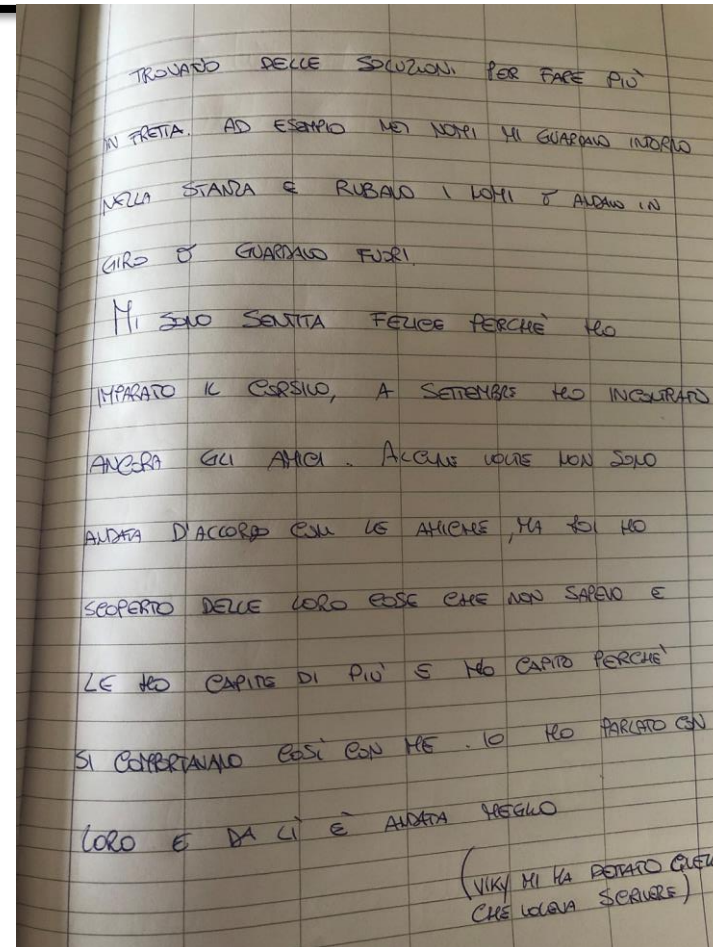 TROVATO DELLE SOLUZIONI PER FARE PIÙ
IN FRETTA. AD ESEMPIO NEI NOMI MI GUARDAVO INTORNO
NELLA STANZA E RUBAVO I NOMI O ANDAVO IN
GIRO O GUARDAVO FUORI.
MI SONO SENTITA FELICE PERCHÈ HO
IMPARATO IL CORSIVO, A SETTEMBRE HO INCONTRATO
ANCORA GLI AMICI. ALCUNE VOLTE NON SONO
ANDATA D'ACCORDO CON LE AMICHE, MA POI HO
SCOPERTO DELLE LORO COSE CHE NON SAPEVO E
LE HO CAPITE DI PIÙ E HO CAPITO PERCHÈ
SI COMPORTAVANO COSÌ CON ME. IO HO PARLATO CON
LORO E DA LÌ È ANDATA MEGLIO
(VIKY MI HA DETTATO
CHE VOLEVA SCRIVERE)